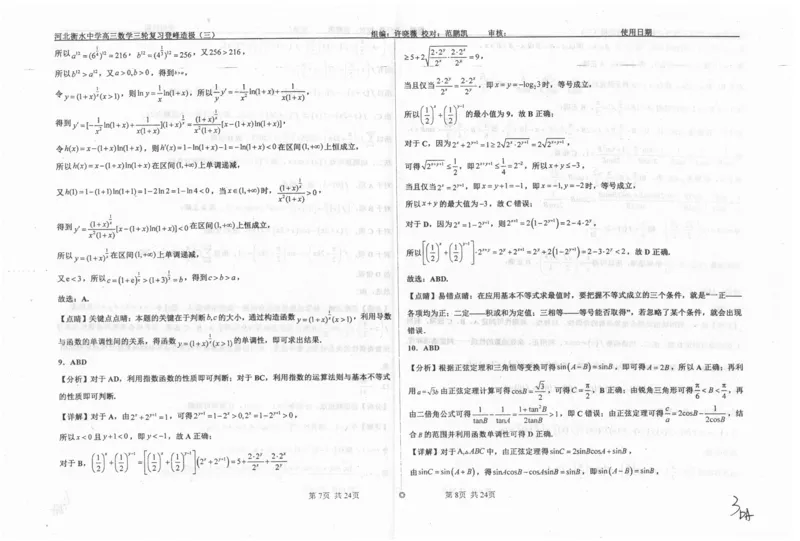 河北衡水中学高三数学三轮复习登峰造极（三）
组编：许晓薇 校对：范鹏凯 审核： 使用日期
所以 a¹²=(6^{1/4})^{12}=216，b¹²=(4^{1/3})^{12}=256，又256>216，
所以b¹²>a¹²，又a>0,b>0，得到b>a，
令 y=(1+x)^{1/x}(x>1)，则 lny=1/x ln(1+x)，所以 1/y y'=-1/x² ln(1+x)+1/x(1+x)，
得到 y'=[-1/x² ln(1+x)+1/x(1+x)](1+x)^{1/x}=(1+x)^{1/x}/x²(1+x) [x-(1+x)ln(1+x)]，
令 h(x)=x-(1+x)ln(1+x)，则 h'(x)=1-ln(1+x)-1=-ln(1+x)<0 在区间(1,+∞)上恒成立，
所以 h(x)=x-(1+x)ln(1+x) 在区间(1,+∞)上单调递减，
又 h(1)=1-(1+1)ln(1+1)=1-2ln2=1-ln4<0，当 x∈(1,+∞) 时，(1+x)^{1/x}/x²(1+x)>0，
得到 y'=(1+x)^{1/x}/x²(1+x) [x-(1+x)ln(1+x)]<0 在区间(1,+∞)上恒成立，
所以 y=(1+x)^{1/x} 在区间(1,+∞)上单调递减，
又e<3，所以 c=(1+e)^{1/e}>(1+3)^{1/3}=b，得到c>b>a，
故选：A.
【点睛】关键点点睛：本题的关键在于判断b,c的大小，通过构造函数 y=(1+x)^{1/x}(x>1)，利用导数
与函数的单调性间的关系，得函数 y=(1+x)^{1/x}(x>1) 的单调性，即可求出结果.
9．ABD
【分析】对于AD，利用指数函数的性质即可判断；对于BC，利用指数的运算法则与基本不等式
的性质即可判断.
【详解】对于A，由2^x+2^{y+1}=1，可得2^{y+1}=1-2^x>0,2^x=1-2^{y+1}>0，
所以x<0且y+1<0，即y<-1，故A正确；
对于B，(1/2)^x+(1/2)^{y-1}=[(1/2)^x+(1/2)^{y-1}](2^x+2^{y+1})=5+2·2^x/2^y+2·2^y/2^x
第 7页 共 24页
≥5+2√(2·2^x/2^y·2·2^y/2^x)=9，
当且仅当 2·2^x/2^y=2·2^y/2^x，即 x=y=-log₂3 时，等号成立，
所以 (1/2)^x+(1/2)^{y-1} 的最小值为9，故B正确；
对于C，因为2^x+2^{y+1}=1≥2√(2^x·2^{y+1})=2√(2^{x+y+1})，
可得 √(2^{x+y+1})≤1/2，即2^{x+y+1}≤1/4=2^{-2}，所以x+y≤-3，
当且仅当2^x=2^{y+1}，即x=y+1=-1，即x=-1,y=-2时，等号成立，
所以x+y的最大值为-3，故C错误；
对于D，因为2^x=1-2^{y+1}，则2^{x+1}=2(1-2^{y+1})=2-4·2^y，
所以 [(1/2)^x+(1/2)^{y-1}]·2^{x+y}=2^y+2^{x+1}=2^y+2(1-2^{y+1})=2-3·2^y<2，故D正确.
故选：ABD.
【点睛】易错点睛：在应用基本不等式求最值时，要把握不等式成立的三个条件，就是“一正——
各项均为正；二定——积或和为定值；三相等——等号能否取得”，若忽略了某个条件，就会出现
错误.
10．ABD
【分析】根据正弦定理和三角恒等变换可得sin(A−B)=sinB，即可得A=2B，所以A正确；再利
用a=√3b由正弦定理计算可得cosB=√3/2，可得C=π/2，B正确；由锐角三角形可得π/6<B<π/4，再
由二倍角公式可得 1/tanB-1/tanA=1+tan²B/2tanB>1，即C错误；由正弦定理可得 c/a=2cosB-1/2cosB，结
合B的范围并利用函数单调性可得D正确.
【详解】对于A,△ABC中，由正弦定理得sinC=2sinBcosA+sinB，
由sinC=sin(A+B)，得sinAcosB−cosAsinB=sinB，即sin(A−B)=sinB，
第 8页 共 24页